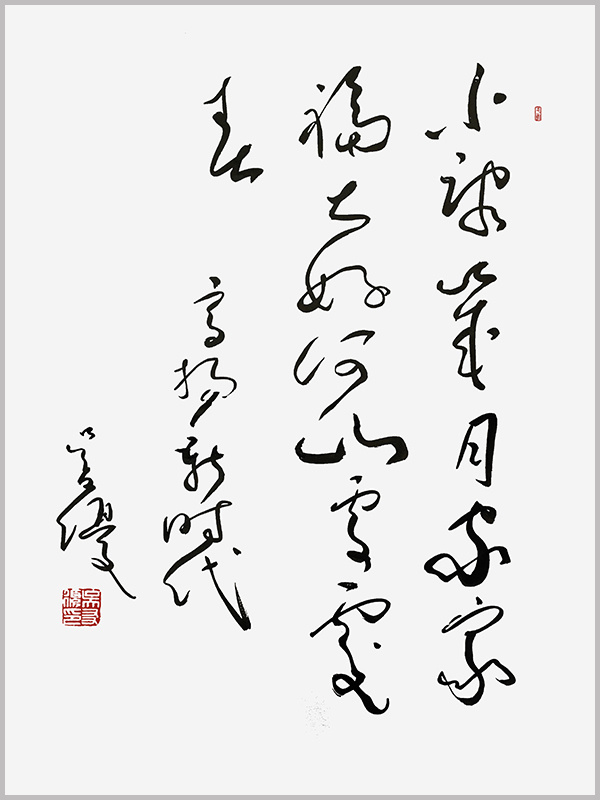 小康岁月家家
福大好河山处处
春
高扬新时代